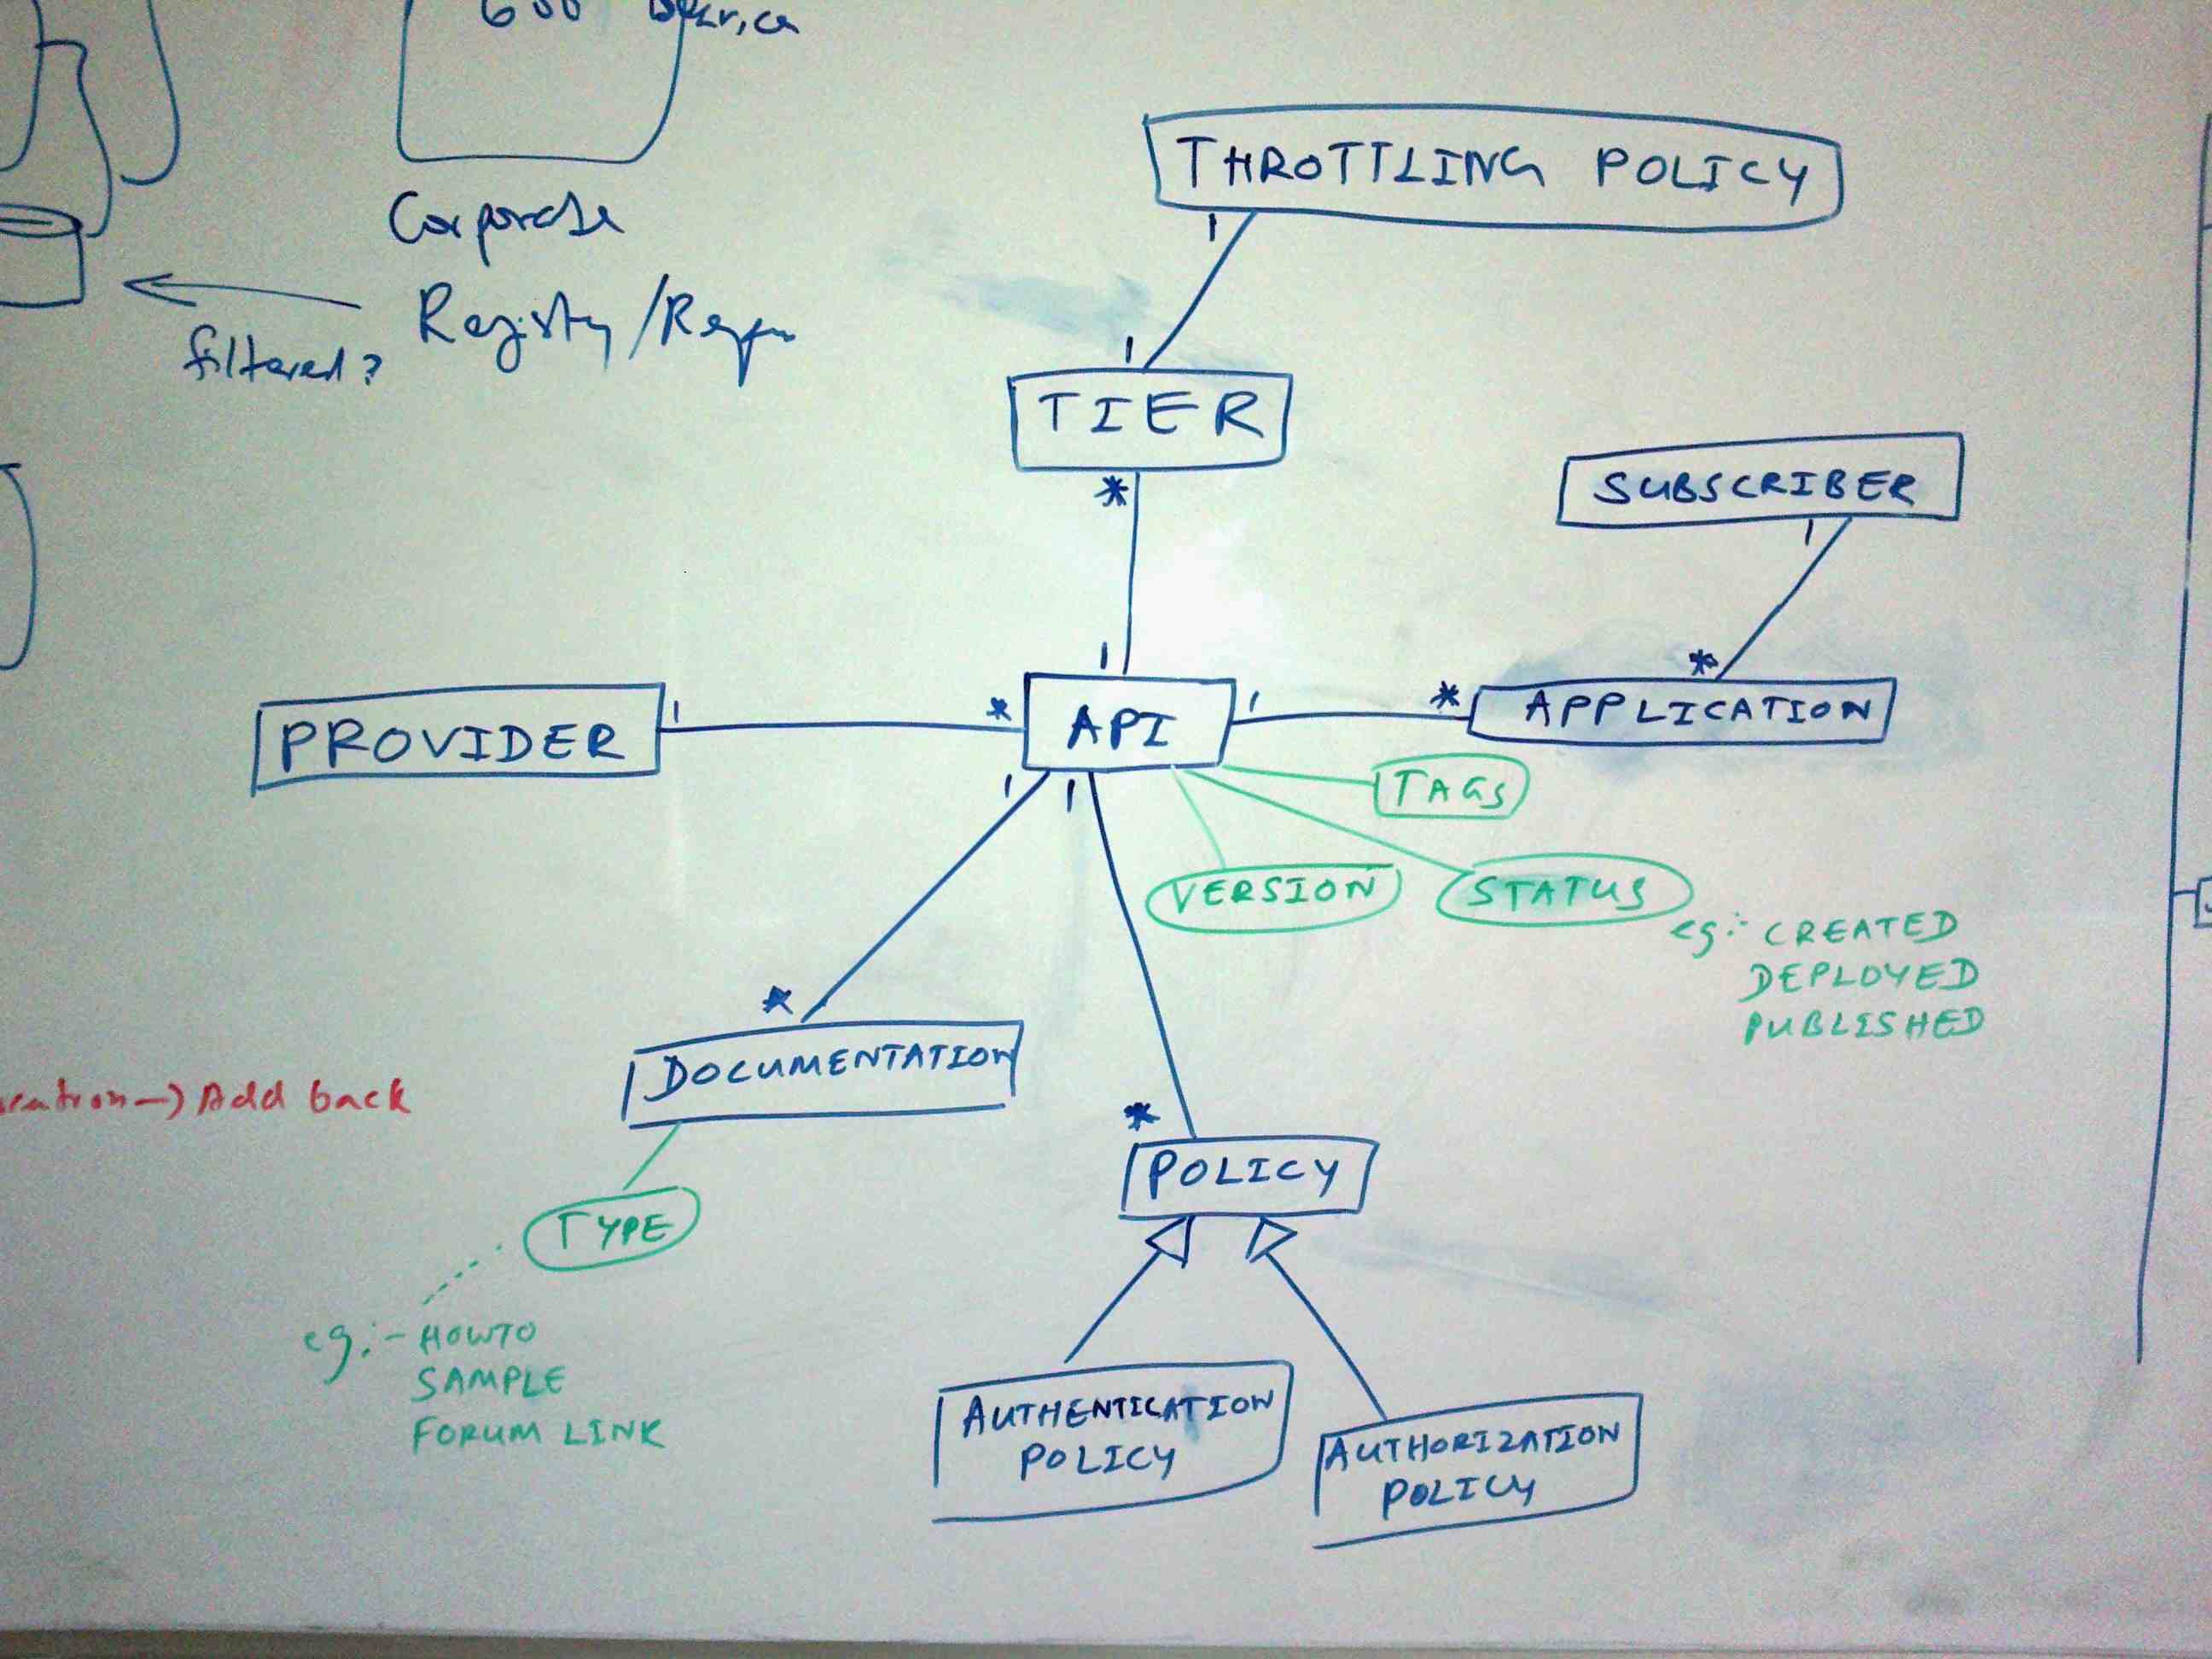 600
Corporate
Registry/Repo
filtered?
THROTTLING POLICY
1
1
TIER
*
SUBSCRIBER
1
1
*
PROVIDER
1
*
API
1
*
APPLICATION
1
1
TAGS
VERSION
STATUS
eg:- CREATED
DEPLOYED
PUBLISHED
*
DOCUMENTATION
→ Add back
*
POLICY
TYPE
eg:- HOWTO
SAMPLE
FORUM LINK
AUTHENTICATION
POLICY
AUTHORIZATION
POLICY